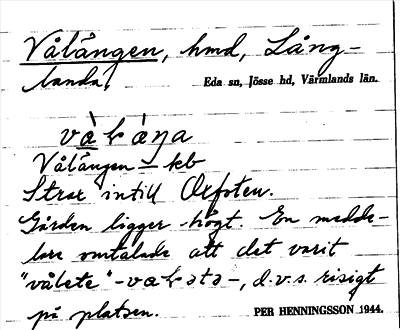 Vålången, hmd, Lång-
landa,
Eda sn, Jösse hd, Värmlands län.
Vålången – kb
Strax intill Oxfoten.
Gården ligger högt. En medde-
lare omtalade att det varit
"vålete" -, d.v.s. risigt
på platsen.
PER HENNINGSSON 1944.